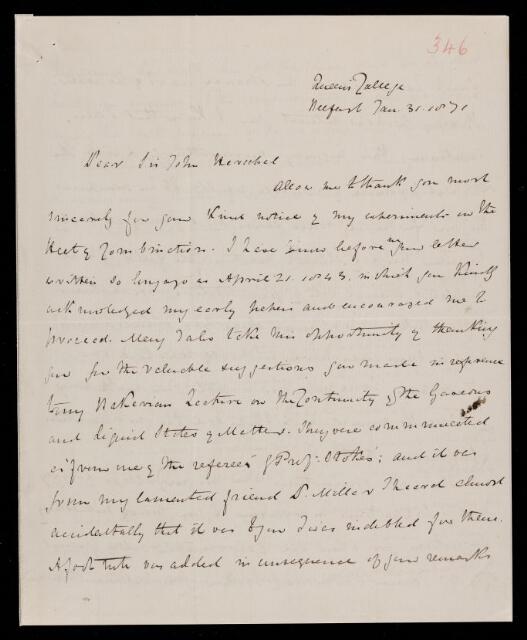 346
Queen's College
Belfast Jan. 31. 1871
Dear Sir John Herschel
Allow me to thank you most
sincerely for your kind notice of my experiments on the
Heat of Combination. I have now before me your letter
written so long ago as April 21. 1843. in which you kindly
acknowledged my early papers and encouraged me to
proceed. May I also take this opportunity of thanking
you for the valuable suggestions you made in reference
to my Bakerian Lecture on the Continuity of the Gaseous
and Liquid States of Matter. They were communicated
as "from one of the referees" by Prof: Stokes; and it was
from my lamented friend Dr. Miller I heard almost
accidentally that it was to you I was indebted for them.
A foot note was added in consequence of your remarks